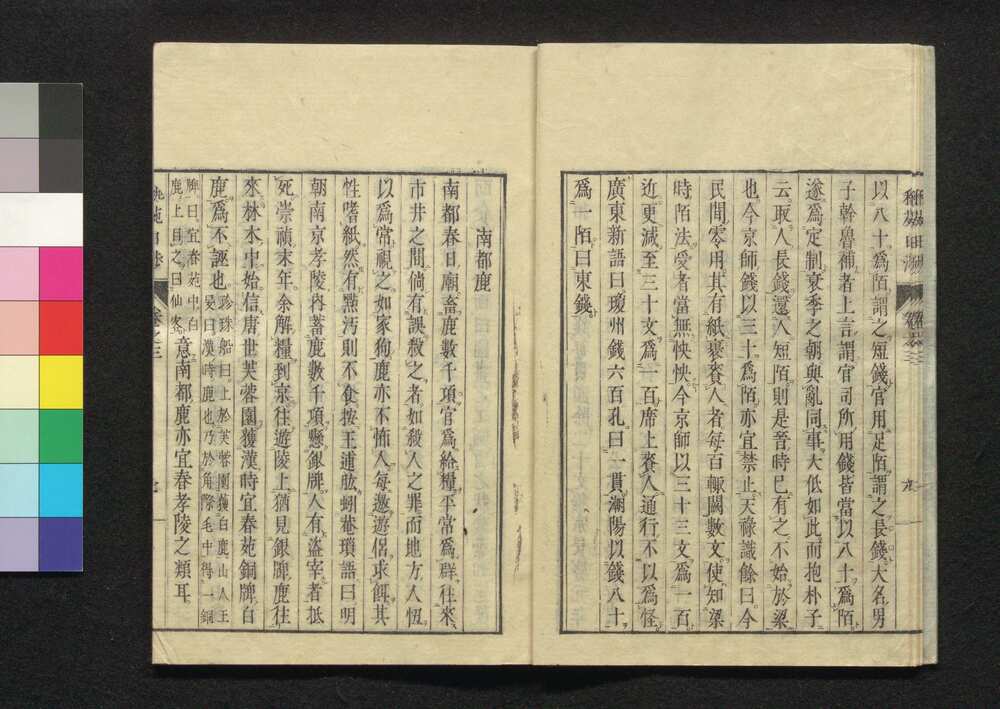 以八十爲陌謂之短錢官用足陌謂之長錢大名男
子幹魯補者上言謂官司所用錢皆當以八十爲陌
遂爲定制衰季之朝與亂同事大低如此而抱朴子
云取人長錢還人短陌則是晉時已有之不始於梁
也今京師錢以三十爲陌亦宜禁止天祿識餘曰今
民間零用其有紙裹賚人者每百輙闕數文使知梁
時陌法受者當無怏怏今京師以三十三文爲一百
近更減至三十文爲一百席上賚人通行不以爲怪
廣東新語曰瓊州錢六百孔曰一貫潮陽以錢八十
爲一陌曰東錢
南都鹿
南都春日廟畜鹿數千項官爲給糧平常爲群往來
市井之間倘有誤殺之者如殺人之罪而地方人恆
以爲常視之如家狗鹿亦不怖人每遨遊侶求餌其
性嗜紙然有㸃汚則不食按王逋肱蚓菴瑣語曰明
朝南京孝陵內蓄鹿數千項懸銀牌人有盜宰者抵
死崇禎末年余解糧到京往遊陵上猶見銀牌鹿往
來林木中始信唐世芙蓉園獲漢時宜春苑銅牌白
鹿爲不誣也
珍珠船曰上於芙蓉園獲白鹿山人王
旻曰漢時鹿也乃於角際毛中得一銅
牌曰宜春苑中白
鹿上目之曰仙客
意南都鹿亦宜春孝陵之類耳
卷三
九